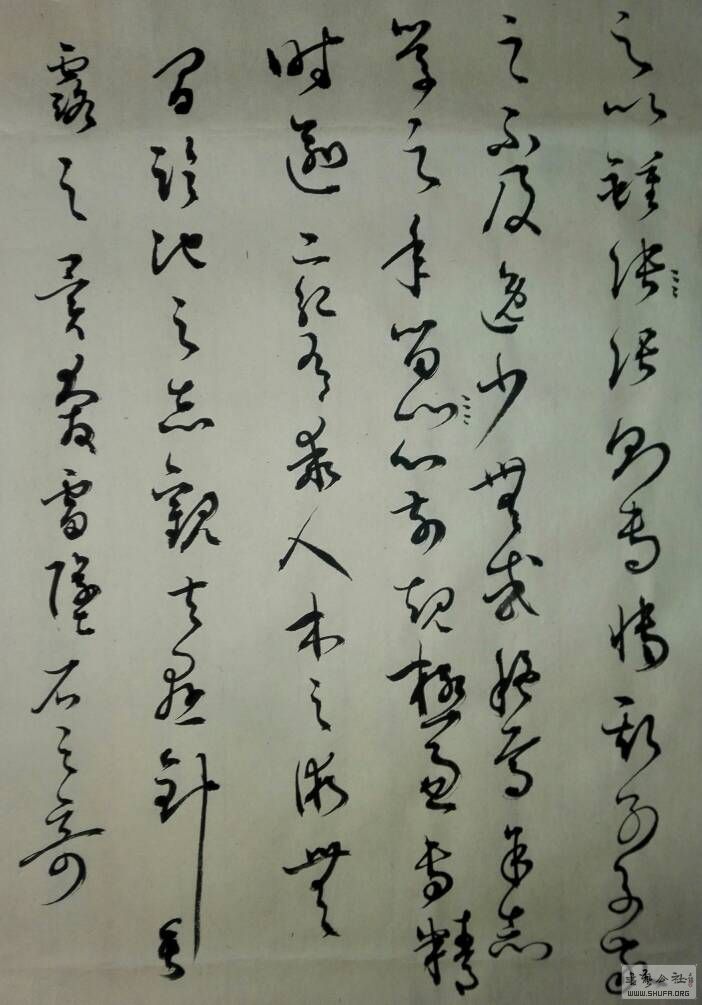 之以鍾張張則專博斯別子敬
之不及逸少無或疑焉余志
學之年留心心前規極慮專精
時逾二紀有乖入木之術無
間臨池之志觀夫懸針垂
露之異奔雷墜石之奇
書藝公社
WWW.SHUFA.ORG